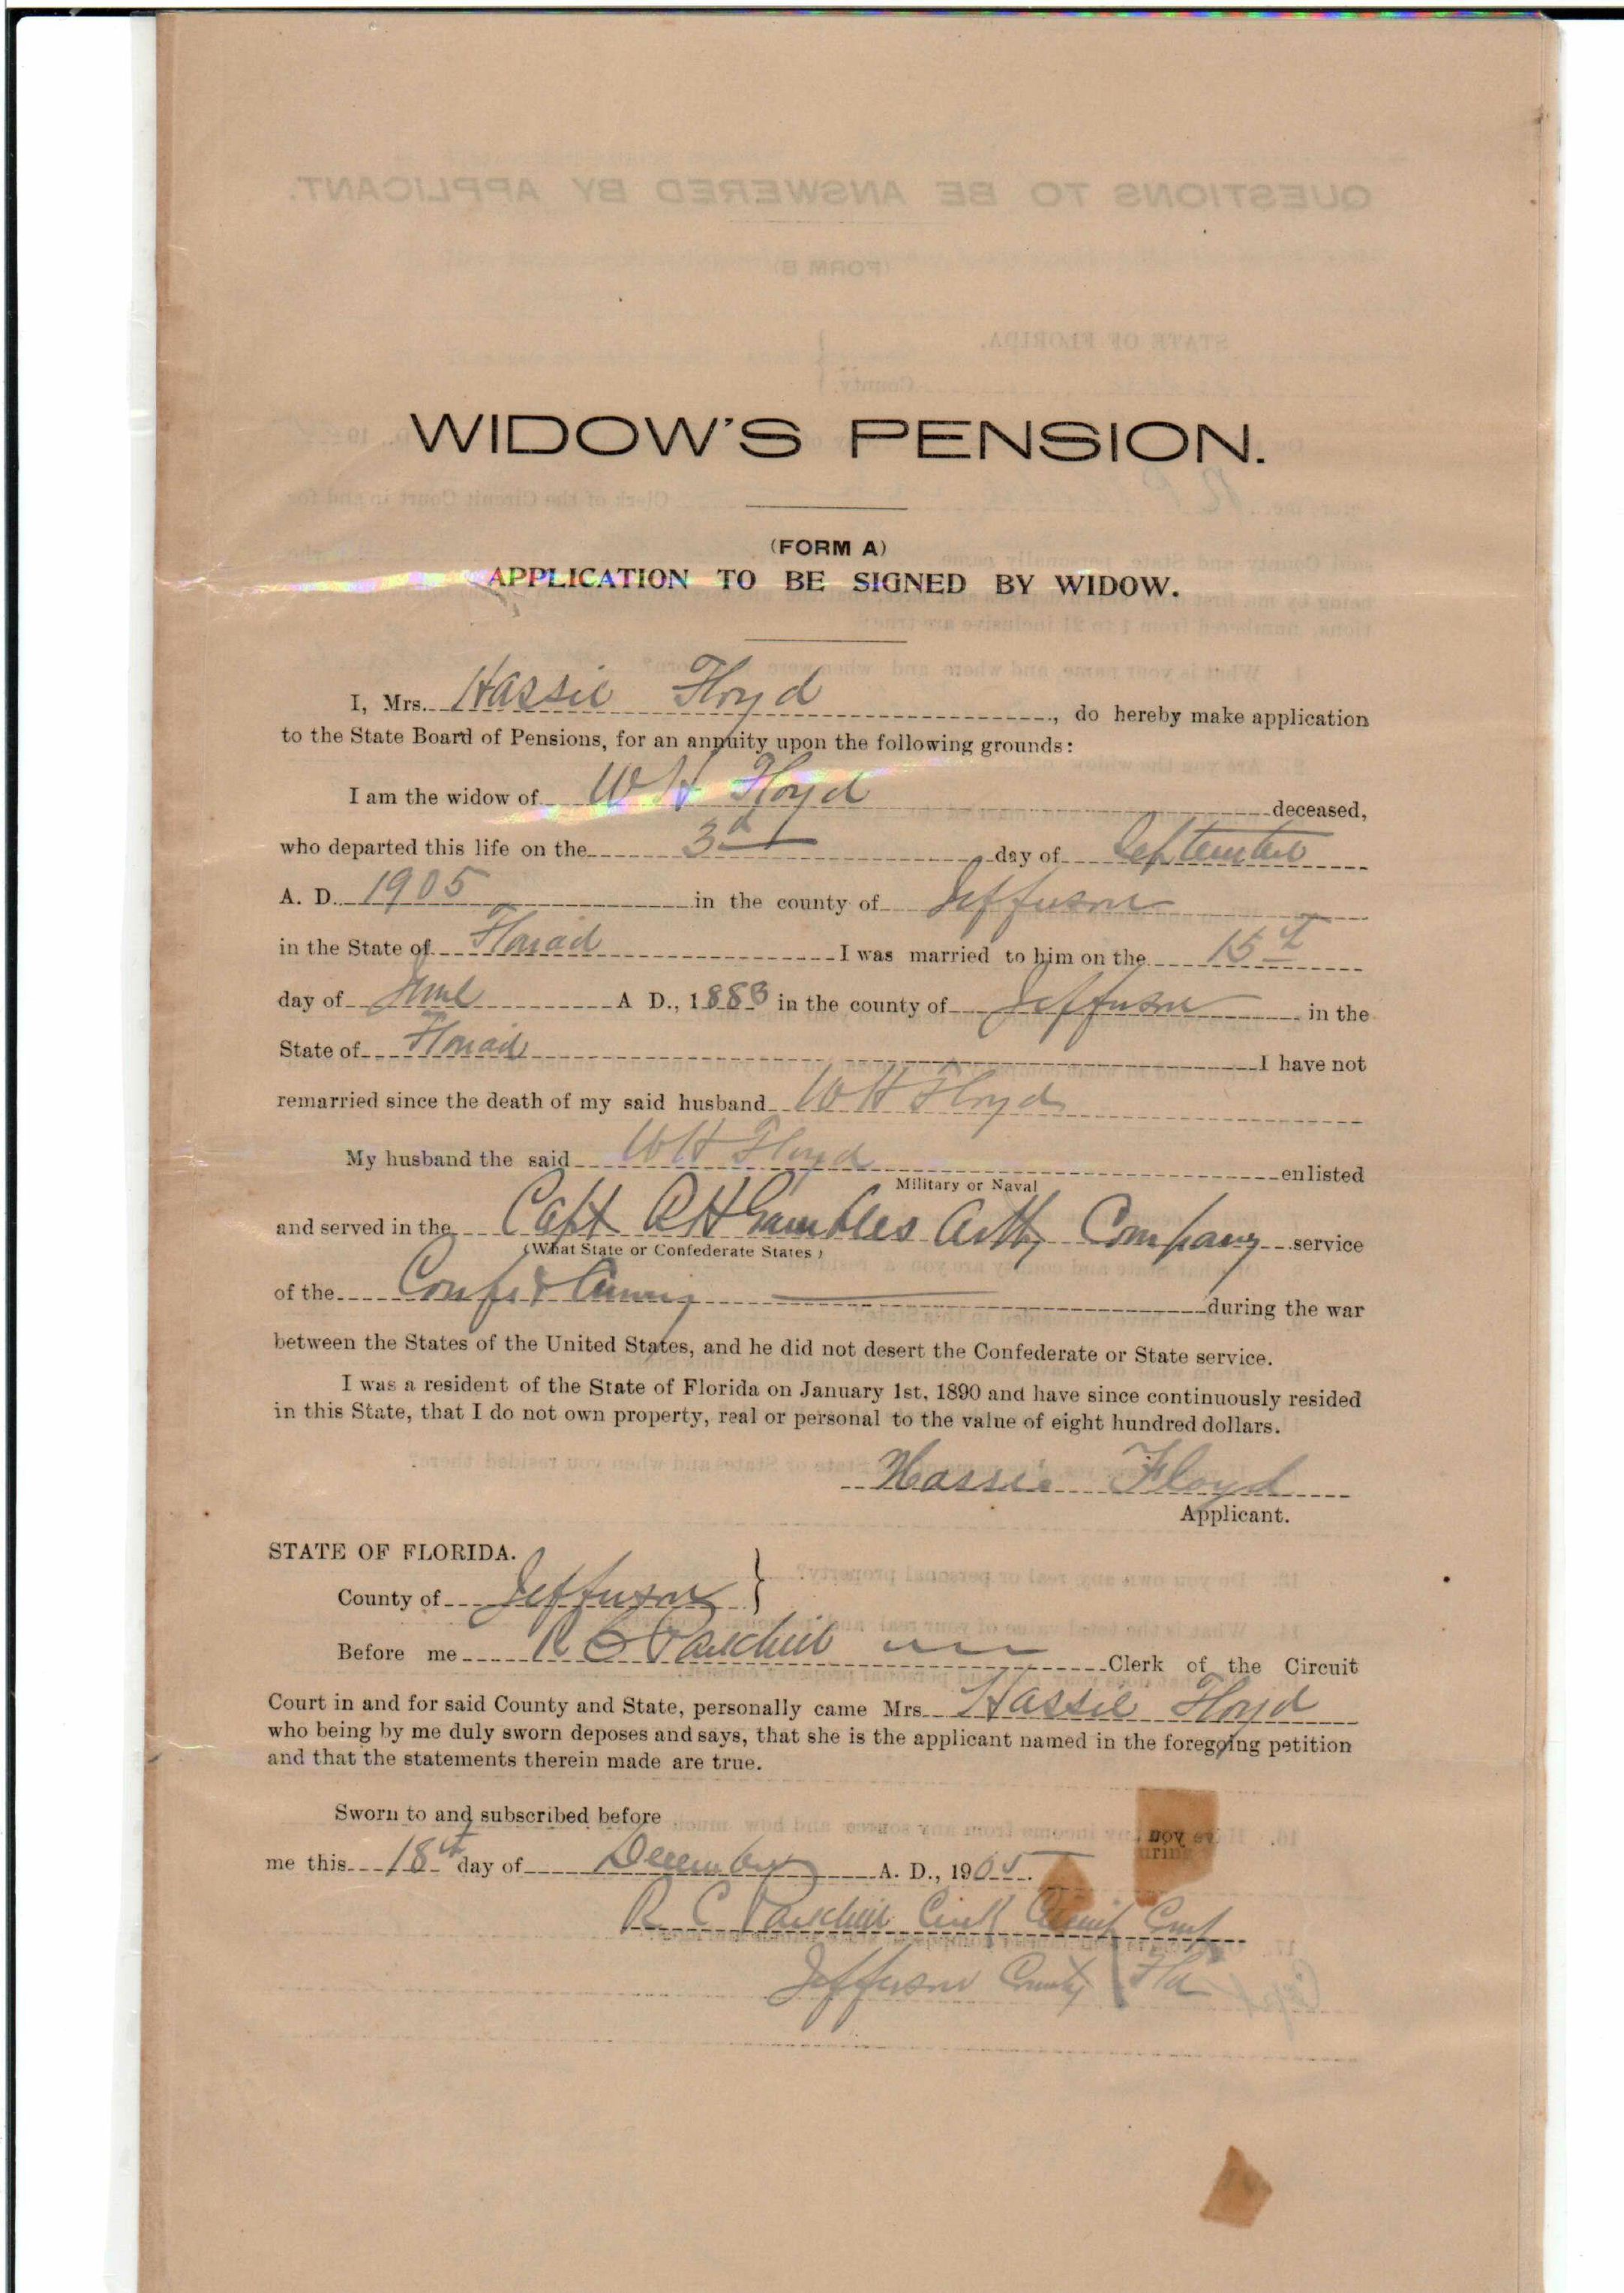 WIDOW'S PENSION.
(FORM A)
APPLICATION TO BE SIGNED BY WIDOW.
I, Mrs. Hassie Floyd, do hereby make application
to the State Board of Pensions, for an annuity upon the following grounds:
I am the widow of W H Floyd deceased,
who departed this life on the 3d day of September
A. D. 1905 in the county of Jefferson
in the State of Floriad I was married to him on the 15th
day of June A D., 1883 in the county of Jefferson in the
State of Floriad I have not
remarried since the death of my said husband W H Floyd
My husband the said W H Floyd enlisted
Military or Naval
and served in the Capt R H Gambles Arty Company service
(What State or Confederate States)
of the Confed Army during the war
between the States of the United States, and he did not desert the Confederate or State service.
I was a resident of the State of Florida on January 1st, 1890 and have since continuously resided
in this State, that I do not own property, real or personal to the value of eight hundred dollars.
Hassie Floyd
Applicant.
STATE OF FLORIDA.
County of Jefferson }
Before me R C Clerk of the Circuit
Court in and for said County and State, personally came Mrs Hassie Floyd
who being by me duly sworn deposes and says, that she is the applicant named in the foregoing petition
and that the statements therein made are true.
Sworn to and subscribed before
me this 18th day of December A. D., 1905.
R C Circuit Court
Jefferson County Fla